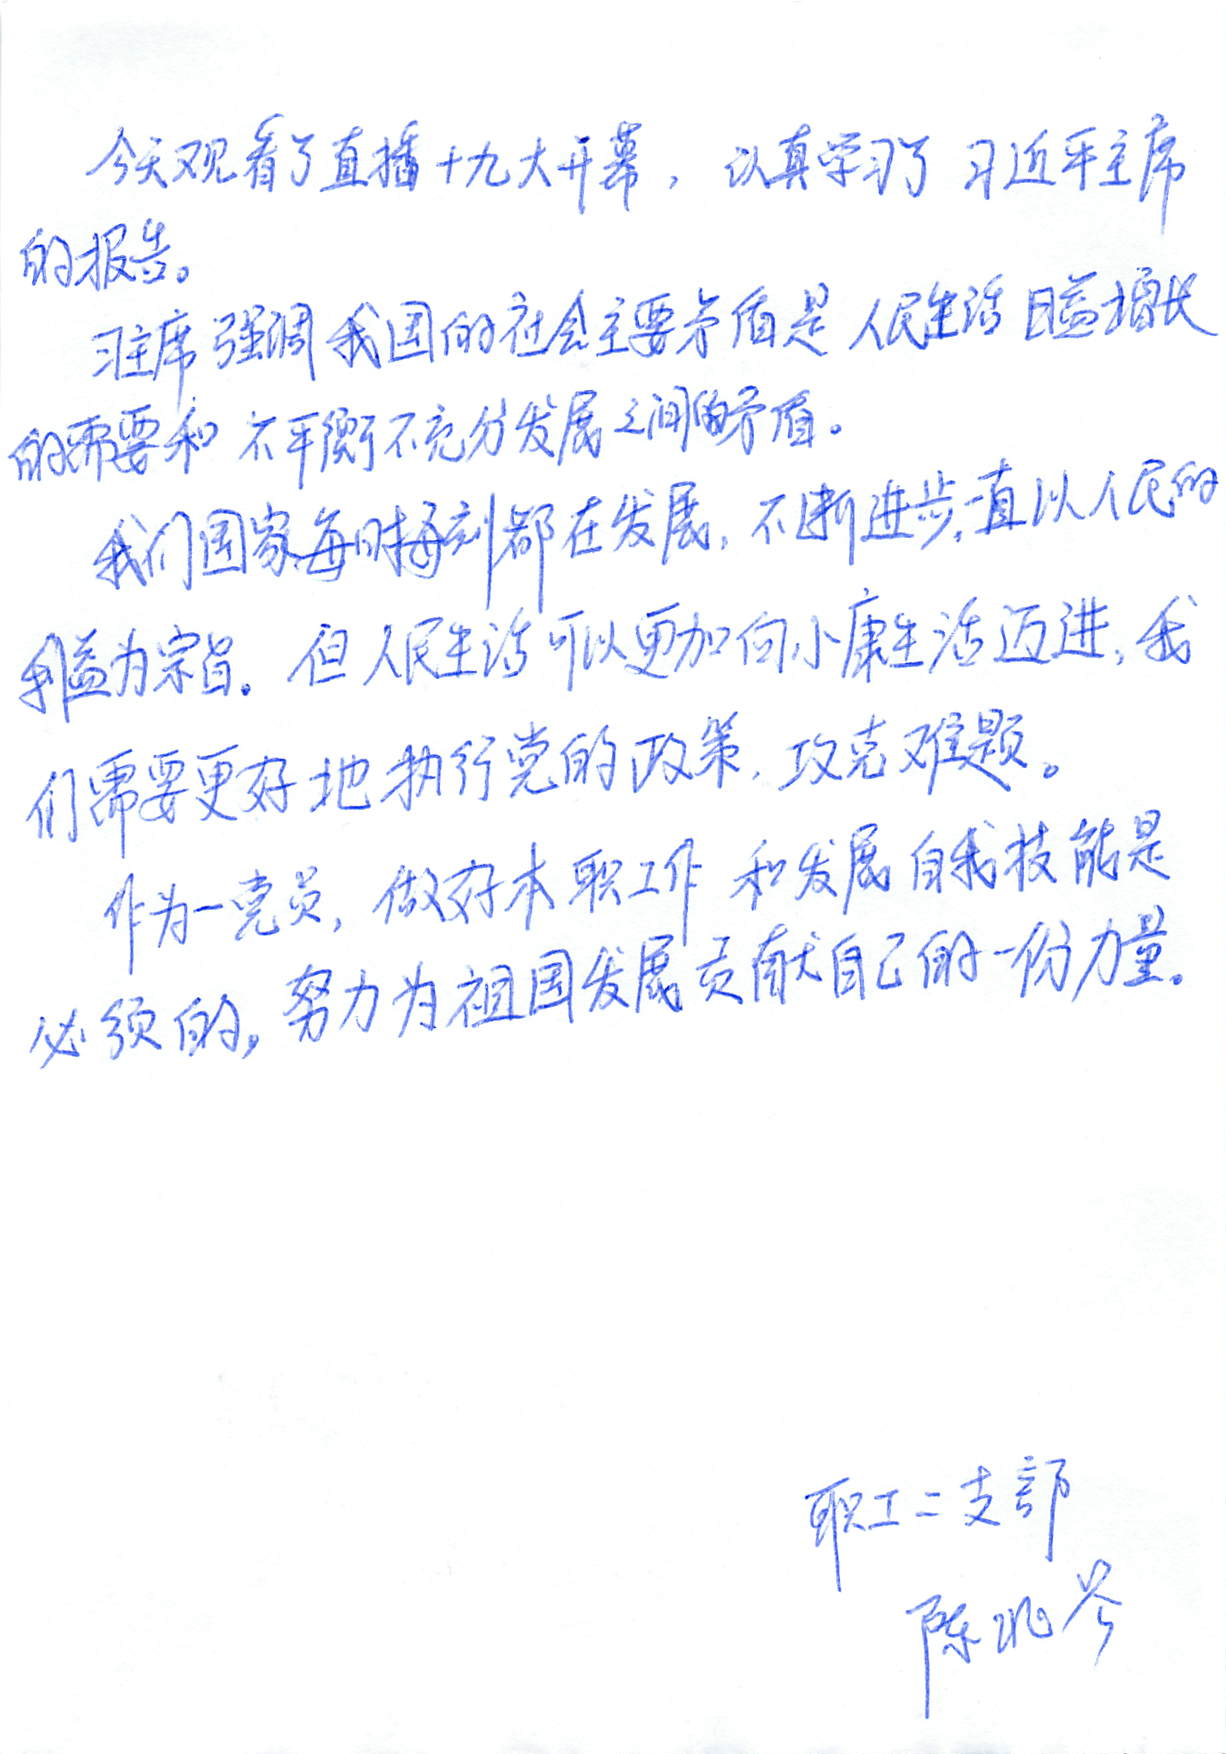 今天观看了直播十九大开幕，认真学习了习近平主席
的报告。
习主席强调我国的社会主要矛盾是人民生活日益增长
的需要和不平衡不充分发展之间的矛盾。
我们国家每时每刻都在发展，不断进步，一直以人民的
利益为宗旨。但人民生活可以更加向小康生活迈进，我
们需要更好地执行党的政策，攻克难题。
作为一党员，做好本职工作和发展自我技能是
必须的，努力为祖国发展贡献自己的一份力量。
职工二支部
陈兆